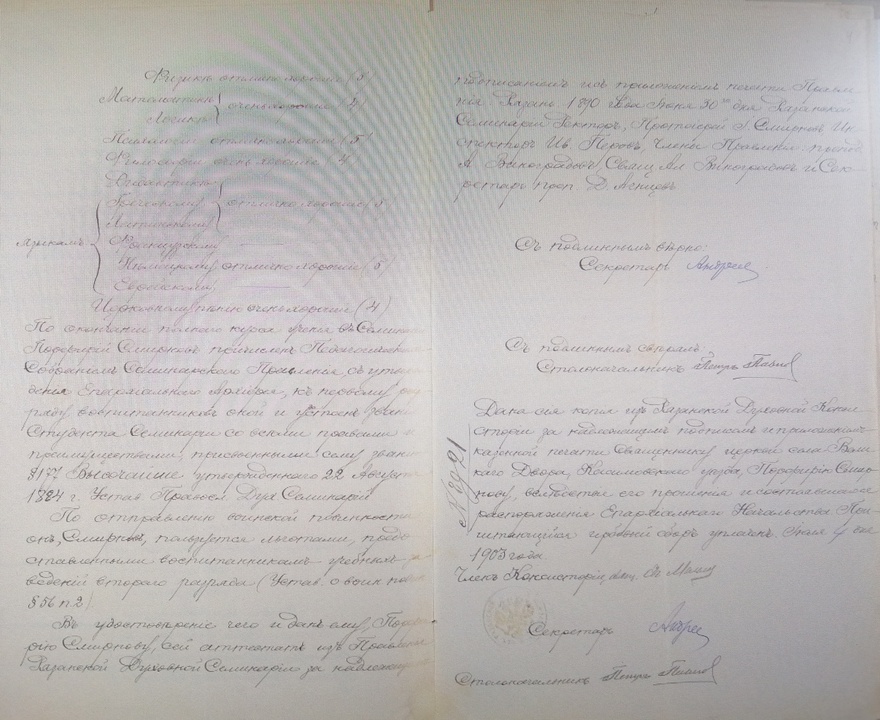 Физикѣ отлично хорошо (5)
Математикѣ
Логикѣ
очень хорошо (4)
Психологіи отлично хорошо (5)
Философіи очень хорошо (4)
Дидактикѣ
Языкамъ:
Греческому
Латинскому
отлично хорошо (5)
Французскому
Нѣмецкому отлично хорошо (5)
Еврейскому
Церковному пѣнію очень хорошо (4)
По окончаніи полнаго курса ученія въ Семинаріи
Порфирій Смирновъ причисленъ Педагогическимъ
Собраніемъ Семинарскаго Правленія, съ утвер-
жденія Епархіальнаго Архіерея, къ первому раз-
ряду воспитанниковъ оной и удостоенъ званія
Студента Семинаріи со всѣми правами и
преимуществами, присвоенными сему званію
§ 177 Высочайше утвержденнаго 22 Августа
1884 г. Устава Правосл. Дух. Семинарій
По отправленію воинской повинности
онъ, Смирновъ, пользуется льготами, предо-
ставленными воспитанникамъ учебныхъ за-
веденій втораго разряда (Устав. о воин. пов.
§ 56 п 2).
Въ удостовѣреніе чего и данъ ему, Порфи-
рію Смирнову, сей аттестатъ изъ Правленія
Рязанской Духовной Семинаріи за надлежащ.
подписаніемъ и съ приложеніемъ печати Правле-
нія. Рязань 1890 года Іюня 30 дня Рязанской
Семинаріи Ректоръ, Протоіерей І. Смирновъ Ин-
спекторъ Ив. Перовъ Члены Правленія: препод.
А. Виноградовъ, Свящ. Ал. Виноградовъ и Сек-
ретарь преп. Д.
Съ подлиннымъ вѣрно:
Секретарь
Съ подлиннымъ вѣрилъ:
Столоначальникъ Петръ
Дана сія копія изъ Рязанской Духовной Конси-
сторіи за надлежащимъ подписомъ и приложеніемъ
казенной печати Священнику церкви села
Двора, Касимовскаго уѣзда, Порфирію Смир-
нову, вслѣдствіе его прошенія и состоявшагося
распоряженія Епархіальнаго Начальства. При-
читающійся гербовый сборъ уплаченъ. дня
1903 года.
Членъ Консисторіи
Секретарь
Столоначальникъ Петръ